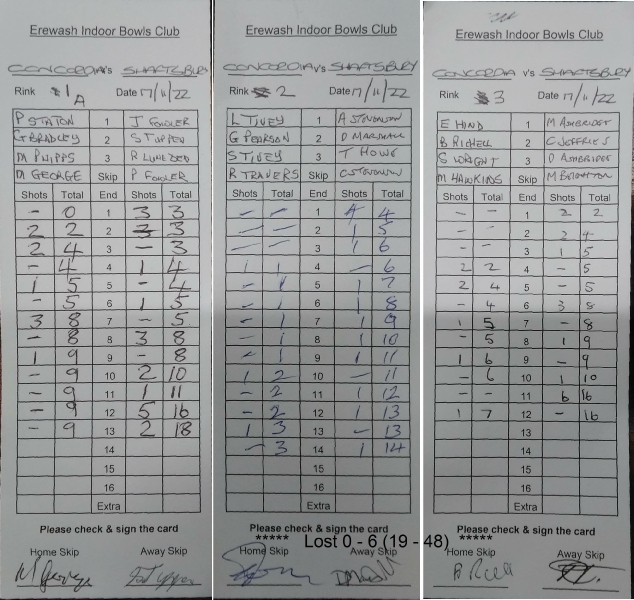 Erewash Indoor Bowls Club
CONCORDIA v's SHAFTSBURY
Rink 1A Date 17/11/22
P STATON 1 J FOWLER
G BRADLEY 2 S TUPPEN
M PHIPPS 3
M GEORGE Skip P FOWLER
Shots Total End Shots Total
- 0 1 3 3
2 2 2 3
2 4 3 - 3
- 4 4 1 4
1 5 5 - 4
- 5 6 1 5
3 8 7 - 5
- 8 8 3 8
1 9 9 - 8
- 9 10 2 10
- 9 11 1 11
- 9 12 5 16
- 9 13 2 18
14
15
16
Extra
Please check & sign the card
Home Skip Away Skip
M George
Erewash Indoor Bowls Club
CONCORDIA v's SHAFTSBURY
Rink 2 Date 17/11/22
L TIVEY 1 A STENDOWN
G PEARSON 2 D MARSHALL
S TIVEY 3 T HOWE
R TRAVERS Skip
Shots Total End Shots Total
- - 1 4 4
- - 2 1 5
- - 3 1 6
1 1 4 - 6
- 1 5 1 7
- 1 6 1 8
- 1 7 1 9
- 1 8 1 10
- 1 9 1 11
1 2 10 - 11
- 2 11 1 12
- 2 12 1 13
1 3 13 - 13
- 3 14 1 14
15
16
Extra
Please check & sign the card
*****
Home Skip Away Skip
Erewash Indoor Bowls Club
CONCORDIA v's SHAFTSBURY
Rink 3 Date 17/11/22
E HIND 1 M AMBRIDGE
B RICHELL 2 C JEFFRIES
S WRIGHT 3 D AMBRIDGE
M HAWKINS Skip M BRIGHTON
Shots Total End Shots Total
- - 1 2 2
- - 2 2 4
- - 3 1 5
2 2 4 - 5
2 4 5 - 5
- 4 6 3 8
1 5 7 - 8
- 5 8 1 9
1 6 9 - 9
- 6 10 1 10
- - 11 6 16
1 7 12 - 16
13
14
15
16
Extra
Please check & sign the card
*****
Home Skip Away Skip
Lost 0 - 6 (19 - 48)